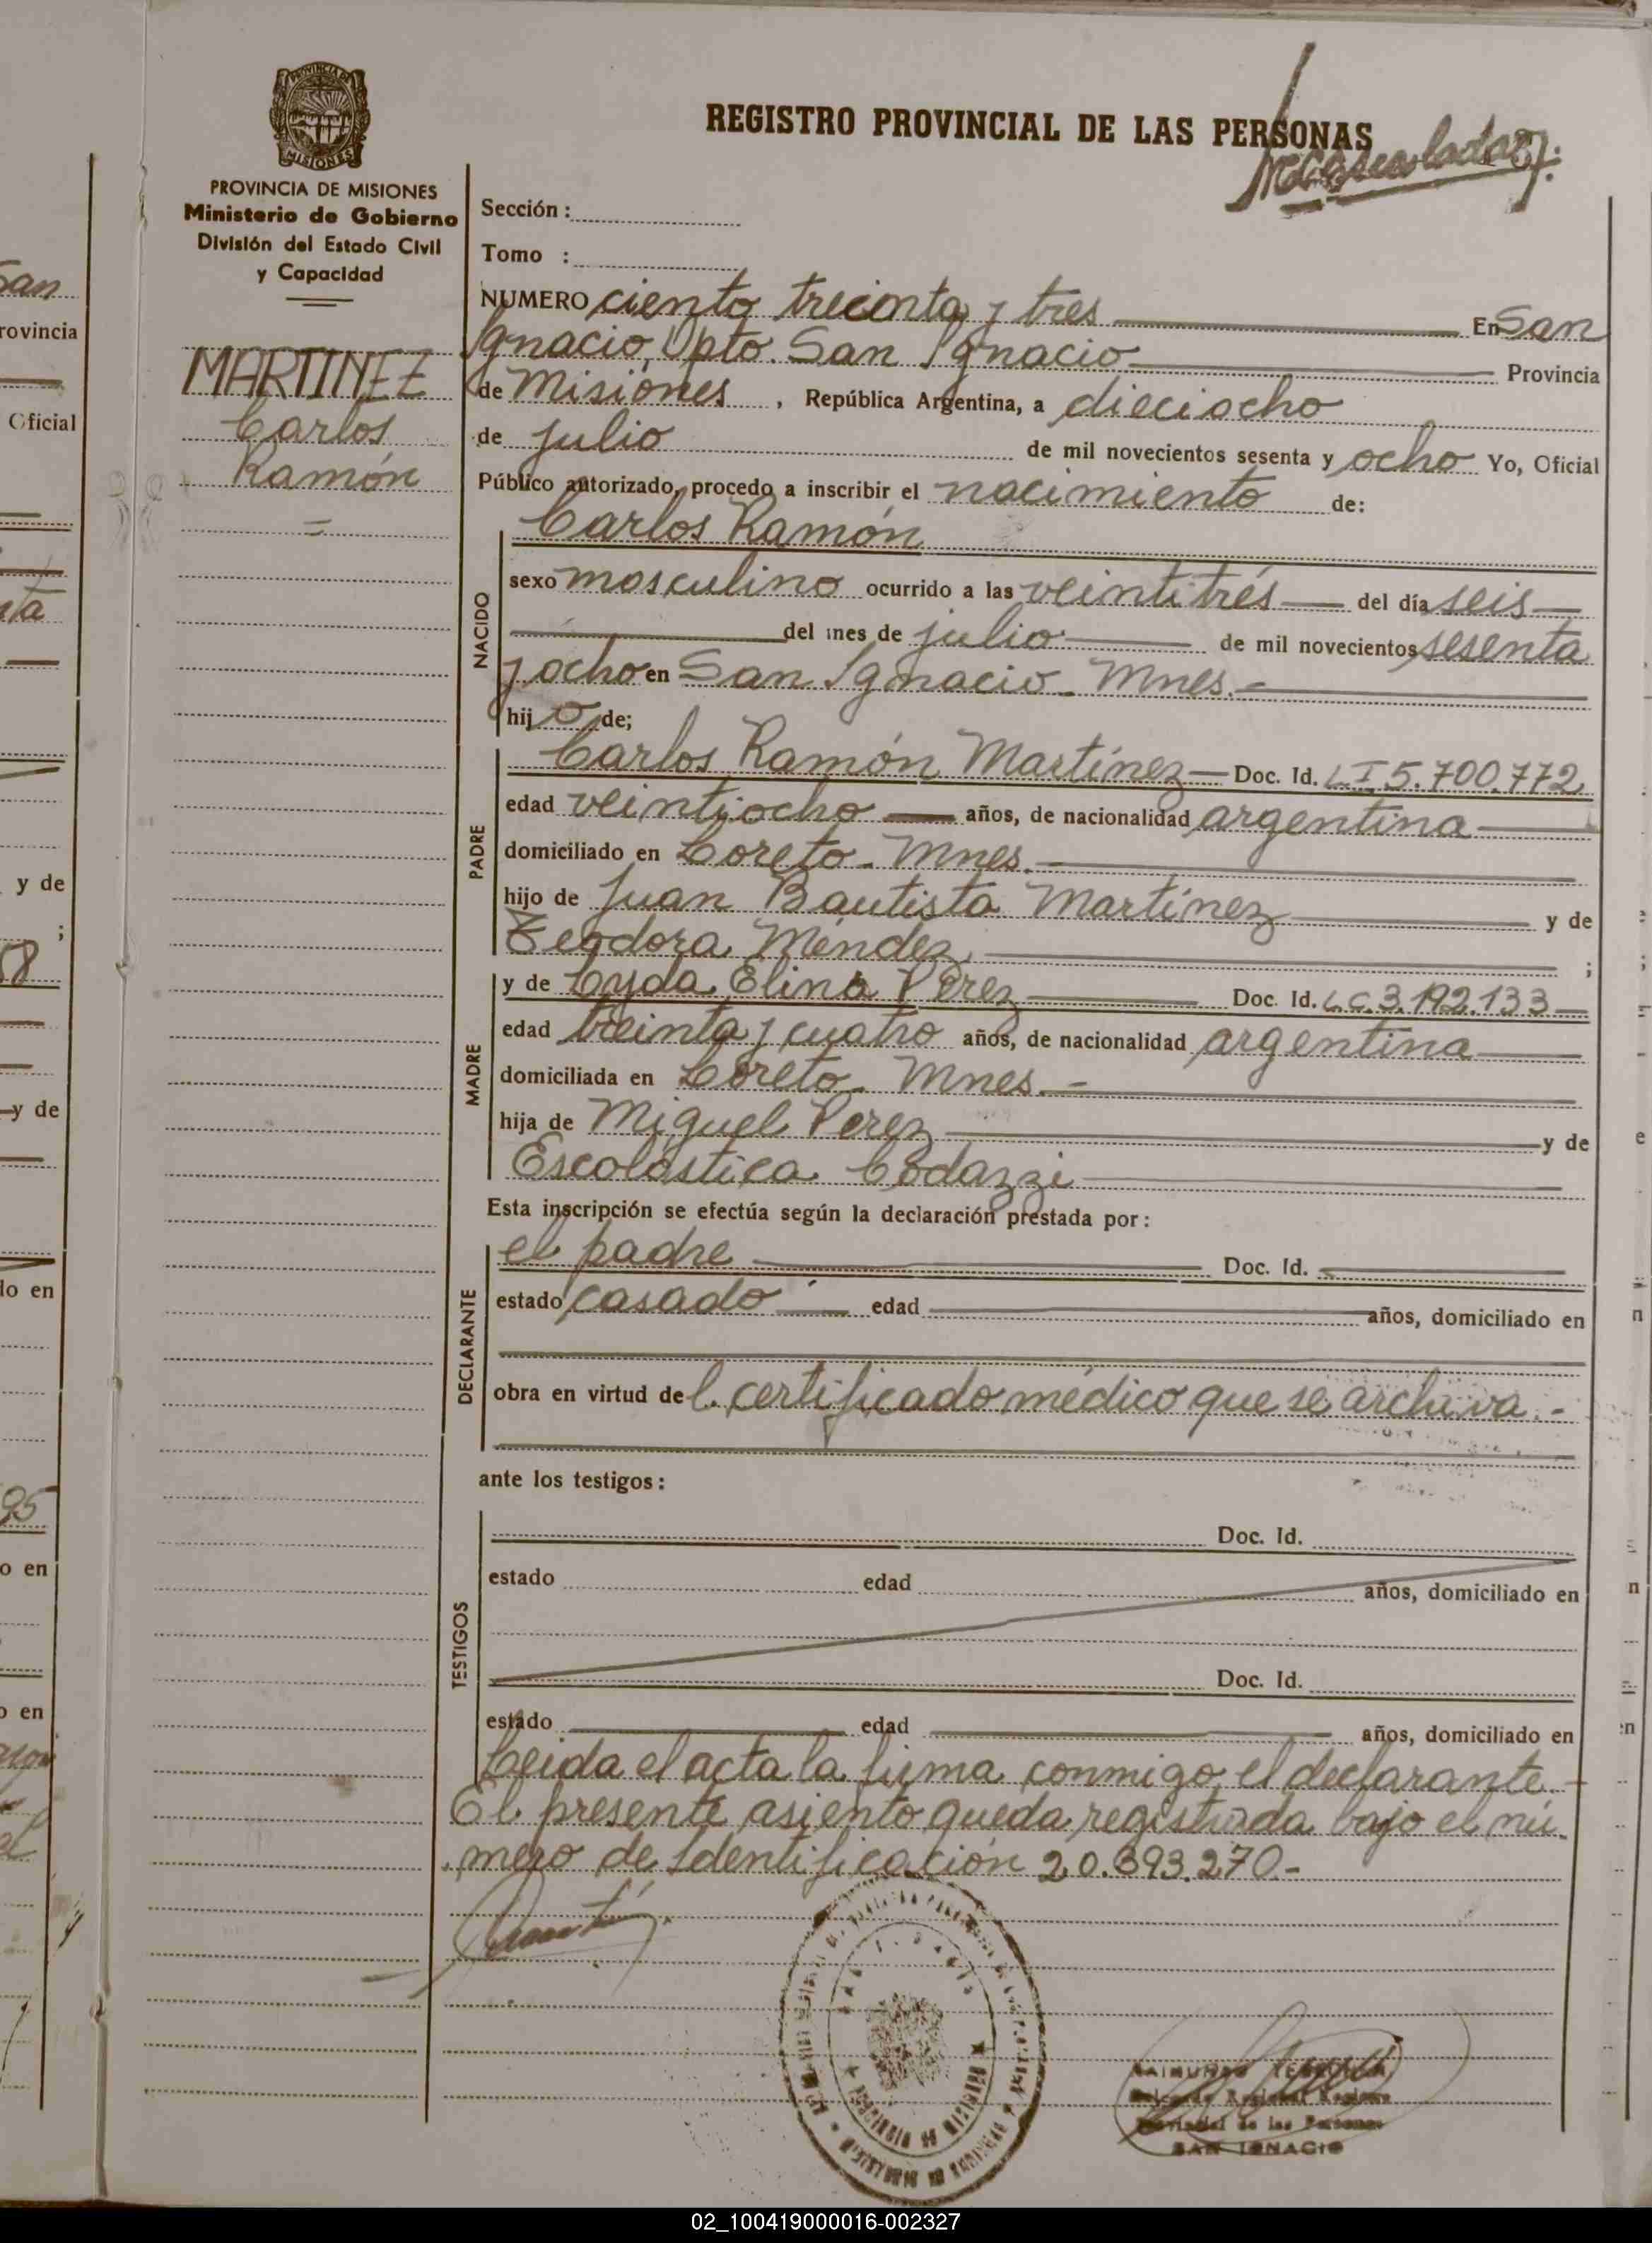 PROVINCIA DE
MISIONES
PROVINCIA DE MISIONES
Ministerio de Gobierno
División del Estado Civil
y Capacidad
MARTINEZ
Carlos
Ramón
=
REGISTRO PROVINCIAL DE LAS PERSONAS
Sección :
Tomo :
NUMERO ciento treinta y tres En San
Ignacio, Dpto. San Ignacio Provincia
de Misiones, República Argentina, a dieciocho
de julio de mil novecientos sesenta y ocho Yo, Oficial
Público autorizado, procedo a inscribir el nacimiento de:
Carlos Ramón
NACIDO
sexo masculino ocurrido a las veintitrés del día seis
del mes de julio de mil novecientos sesenta
y ocho en San Ignacio - Mnes. -
hijo de;
PADRE
Carlos Ramón Martínez Doc. Id. L.I 5.700.772
edad veintiocho años, de nacionalidad argentina
domiciliado en Loreto - Mnes.
hijo de Juan Bautista Martínez y de
Teodora Méndez ;
MADRE
y de Lyda Elina Pérez Doc. Id. L.C. 3.192.133
edad treinta y cuatro años, de nacionalidad argentina
domiciliada en Loreto - Mnes. -
hija de Miguel Perez y de
Escolástica Codazzi
Esta inscripción se efectúa según la declaración prestada por :
DECLARANTE
el padre Doc. Id.
estado casado edad años, domiciliado en
obra en virtud del certificado médico que se archiva. -
ante los testigos :
TESTIGOS
Doc. Id.
estado edad años, domiciliado en
Doc. Id.
estado edad años, domiciliado en
Leida el acta la firma conmigo el declarante. -
El presente asiento queda registrada bajo el nú-
mero de Identificación 20.393.270.-
Delegado Regional Registro
Provincial de las Personas
SAN IGNACIO
San
rovincia
Oficial
y de
;
y de
do en
95
o en
o en
02_100419000016-002327